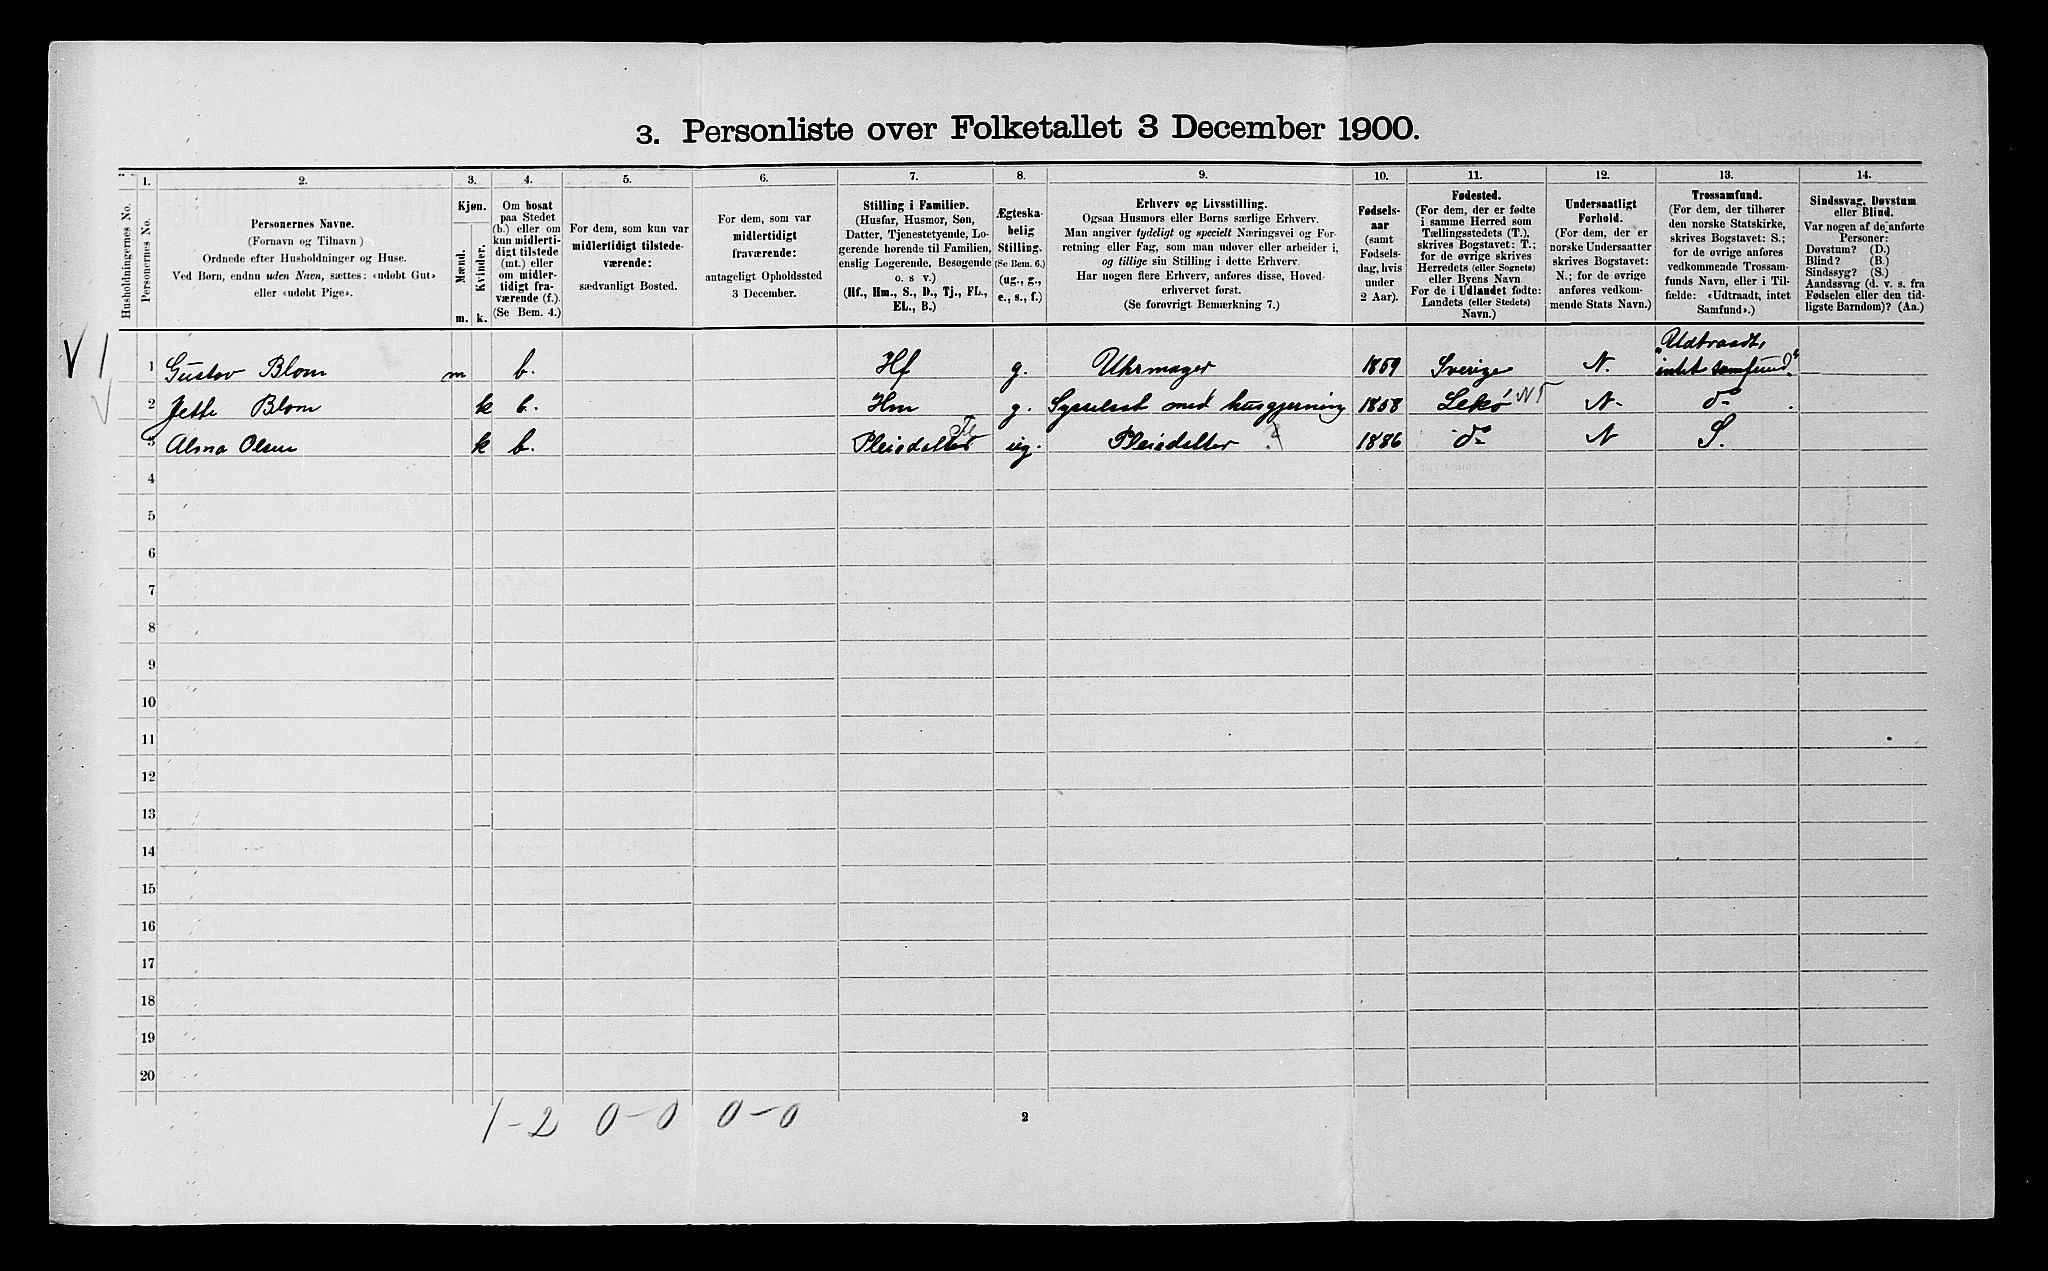 3. Personliste over Folketallet 3 December 1900.
1. 2. 3. 4. 5. 6. 7. 8. 9. 10. 11. 12. 13. 14.
Husholdningernes No.
Personernes No.
Personernes Navne.
(Fornavn og Tilnavn)
Ordnede efter Husholdninger og Huse.
Ved Børn, endnu uden Navn, sættes: «udøbt Gut»
eller «udøbt Pige».
Kjøn.
Mænd.
Kvinder.
m. k.
Om bosat
paa Stedet
(b.) eller om
kun midlerti-
digt tilstede
(mt.) eller
om midler-
tidigt fra-
værende (f.).
(Se Bem. 4.)
For dem, som kun var
midlertidigt tilstede-
værende:
sædvanligt Bosted.
For dem, som var
midlertidigt
fraværende:
antageligt Opholdssted
3 December.
Stilling i Familien.
(Husfar, Husmor, Søn,
Datter, Tjenestetyende, Lo-
gerende hørende til Familien,
enslig Logerende, Besøgende
o. s v.)
(Hf., Hm., S., D., Tj., FL.,
EL., B.)
Ægteska-
belig
Stilling.
(Se Bem. 6.)
(ug., g.,
e., s., f.)
Erhverv og Livsstilling.
Ogsaa Husmors eller Børns særlige Erhverv.
Man angiver tydeligt og specielt Næringsvei og For-
retning eller Fag, som man udøver eller arbeider i,
og tillige sin Stilling i dette Erhverv.
Har nogen flere Erhverv, anføres disse, Hoved-
erhvervet først.
(Se forøvrigt Bemærkning 7.)
Fødsels-
aar
(samt
Fødsels-
dag, hvis
under
2 Aar).
Fødested.
(For dem, der er fødte
i samme Herred som
Tællingsstedets (T.),
skrives Bogstavet: T.;
for de øvrige skrives
Herredets (eller Sognets)
eller Byens Navn
For de i Udlandet fødte:
Landets (eller Stedets)
Navn.)
Undersaatligt
Forhold.
(For dem, der er
norske Undersaatter
skrives Bogstavet:
N.; for de øvrige
anføres vedkom-
mende Stats Navn.)
Trossamfund.
(For dem, der tilhører
den norske Statskirke,
skrives Bogstavet: S.;
for de øvrige anføres
vedkommende Trossam-
funds Navn, eller i Til-
fælde: «Udtraadt, intet
Samfund».)
Sindssvag, Døvstum
eller Blind.
Var nogen af de anførte
Personer:
Døvstum? (D.)
Blind? (B.)
Sindssyg? (S.)
Aandssvag (d. v. s. fra
Fødselen eller den tid-
ligste Barndom)? (Aa.)
"Udtraadt,
1 Gustav Blom m b. Hf g. Uhrmager 1859 Sverige N. intet samfund"
2 Jette Blom k b. Hm g. Sysselsat med husgjerning 1858 Lekø NT N. do
3 Alma Olsen k b. Pleiedatter Fl ug. Pleiedatter ? 1886 do N S.
4
5
6
7
8
9
10
11
12
13
14
15
16
17
18
19
20
1-2 0-0 0-0
2